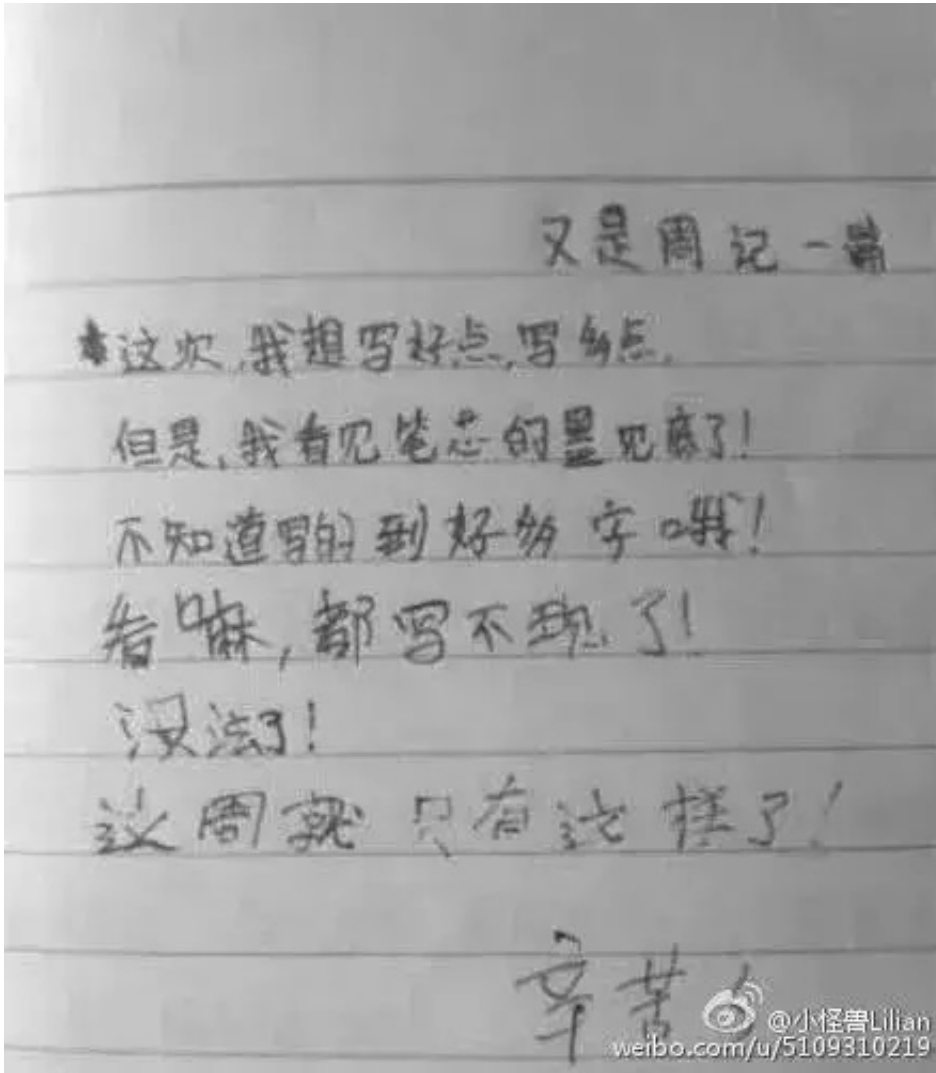 又是周记一篇
这次,我想写好点,写多点.
但是,我看见笔芯的墨见底了!
不知道写的到好多字哦!
看嘛,都写不现了!
没法了!
这周就只有这样了!
辛苦!
@小怪兽Lilian
weibo.com/u/5109310219